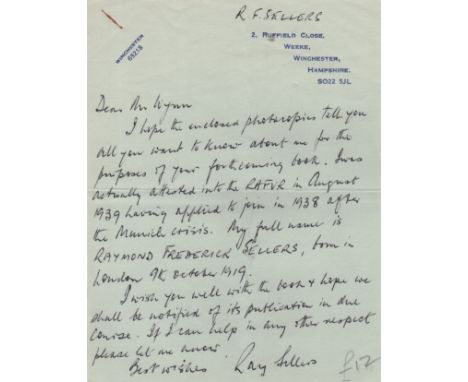 R. F. SELLERS
WINCHESTER
65218
2, RUFFIELD CLOSE,
WEEKE,
WINCHESTER,
HAMPSHIRE.
SO22 5JL
Dear Mr Wynn
I hope the enclosed photocopies tell you
all you want to know about me for the
purposes of your forthcoming book. I was
actually attested into the RAFVR in August
1939 having applied to join in 1938 after
the Munich crisis. My full name is
RAYMOND FREDERICK SELLERS, born in
London 9th October 1919.
I wish you well with the book & hope we
shall be notified of its publication in due
course. If I can help in any other respect
please let me know.
Best wishes Ray Sellers
£12